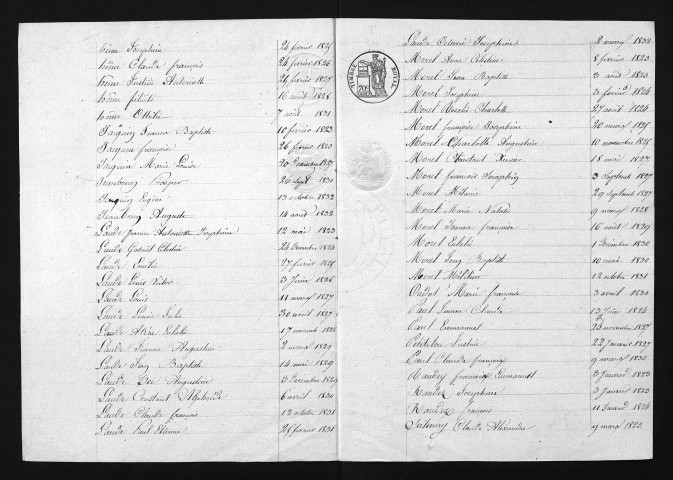 hême Joséphine 24 février 1825
hême Claude françois 24 février 1826
hême Justine Antoinette 24 février 1827
hême félicité 16 août 1828
hême 7 août 1831
Jacquin Jeanne Baptiste 10 février 1823
Jacquin françoise 26 février 1823
Jacquin Marie Louise 20 Décembre 1825
Prosper 26 Sept 1830
Eugène 13 octobre 1832
Auguste 14 août 1832
Laude Jeanne Antoinette Joséphine 12 mai 1823
Laude Gabriel 24 Décembre 1824
Laude Emilie 27 février 1825
Laude Louis Victor 3 Juin 1826
Laude Louis 11 mars 1827
Laude Louise Julie 30 avril 1827
Laude Eulalie 17 novemb 1828
Laude Augustin 2 mars 1829
Laude Jean Baptiste 14 mai 1829
Laude Augustine 3 Décembre 1829
Laude Constant 6 avril 1830
Laude Claude françois 12 octobre 1831
Laude Paul Etienne 21 février 1831
Laude Octavie Joséphine 2 mars 1832
TIMBRE ROYAL
Morel Anne Célestine 8 février 1823
Morel Jean Baptiste 3 août 1823
Morel Joséphine 3 février 1824
Morel Charlotte 27 août 1824
Morel françoise Joséphine 20 mars 1825
Morel Charlotte Augustine 10 novembre 1825
Morel Constant 18 mai 1827
Morel françois Séraphin 3 Septemb 1827
Morel Mélanie 29 Septemb 1827
Morel Marie Natalie 9 mars 1828
Morel Jeanne françoise 16 août 1829
Morel Eulalie 1 Décembre 1830
Morel Jean Baptiste 10 mai 1830
Morel 12 octobre 1831
Oudot Marie françoise 3 avril 1830
Paul Jeanne Claude 13 Juin 1824
Paul Emmanuel 23 novembre 1825
Petitlou Justin 22 Janvier 1827
Paul Claude françois 9 mars 1830
françois Emmanuel 3 Janvier 1823
Joséphine 3 Janvier 1823
françois 11 Janvier 1826
Claude Alexandre 9 mars 1823